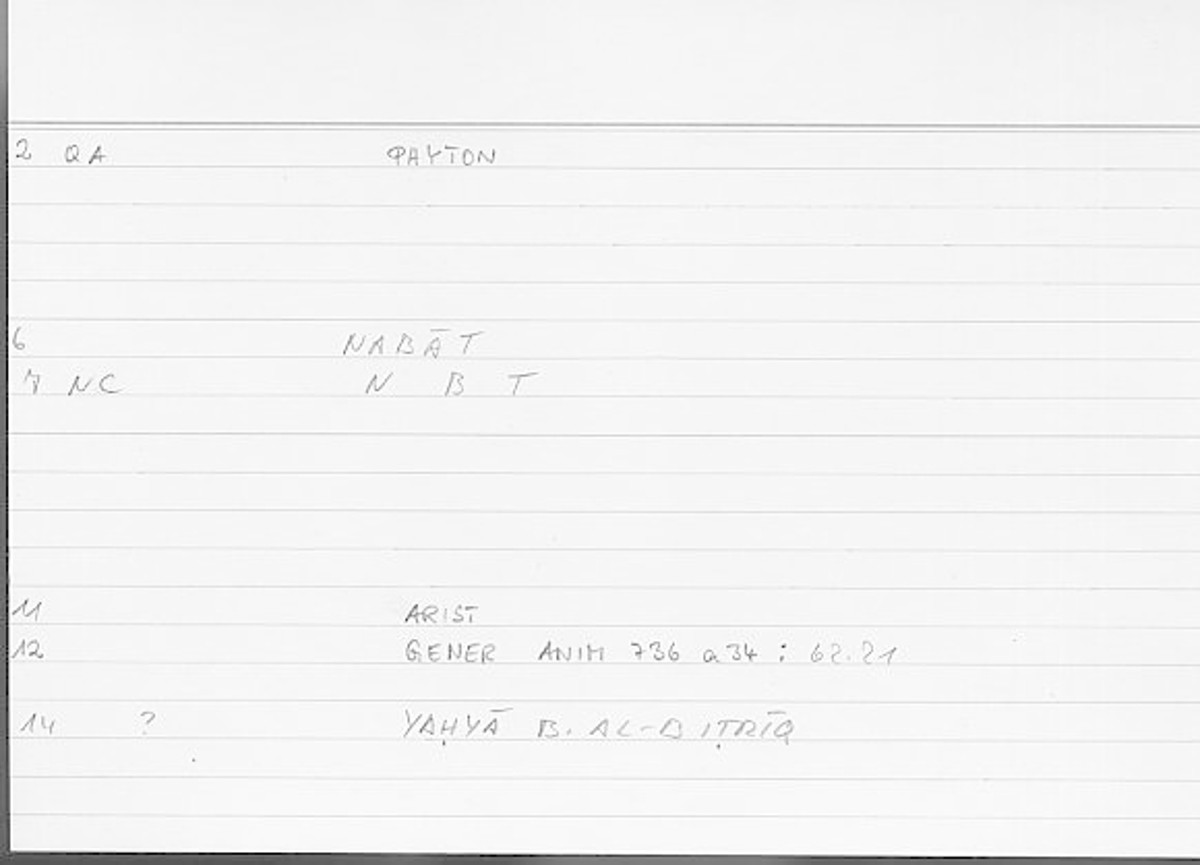 2 QA PHYTON
6 NABĀT
7 NC N B T
11 ARIST
12 GENER ANIM 736 a 34 : 62.21
14 ? YAḤYĀ B. AL-BIṬRĪQ